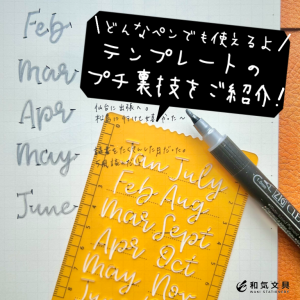 \どんなペンでも使えるよ/
テンプレートの
プチ裏技をご紹介!
Feb
Mar
Apr
May
June
仙台に出張へ。
Jan July
Feb Aug
Mar Sept
Apr Oct
May Nov
和気文具
WAKI STATIONERY